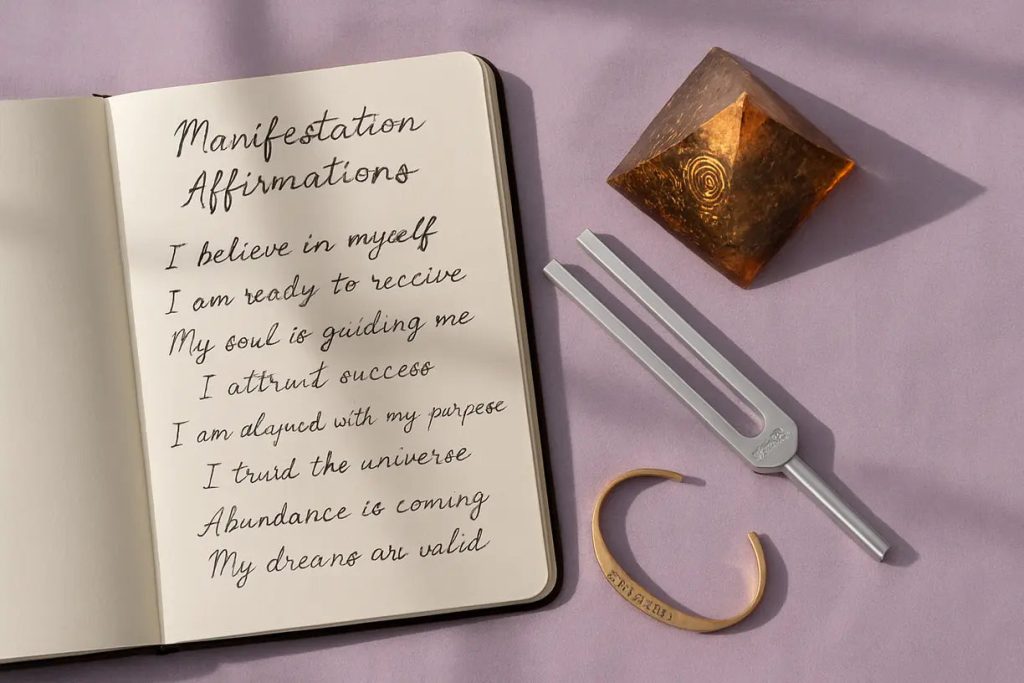 Manifestation
Affirmations
I believe in mycelf
I am ready to receive
My soul is guiding me
I success
I am with my purpese
I the universe
Abundance is coming
My dreans are valid